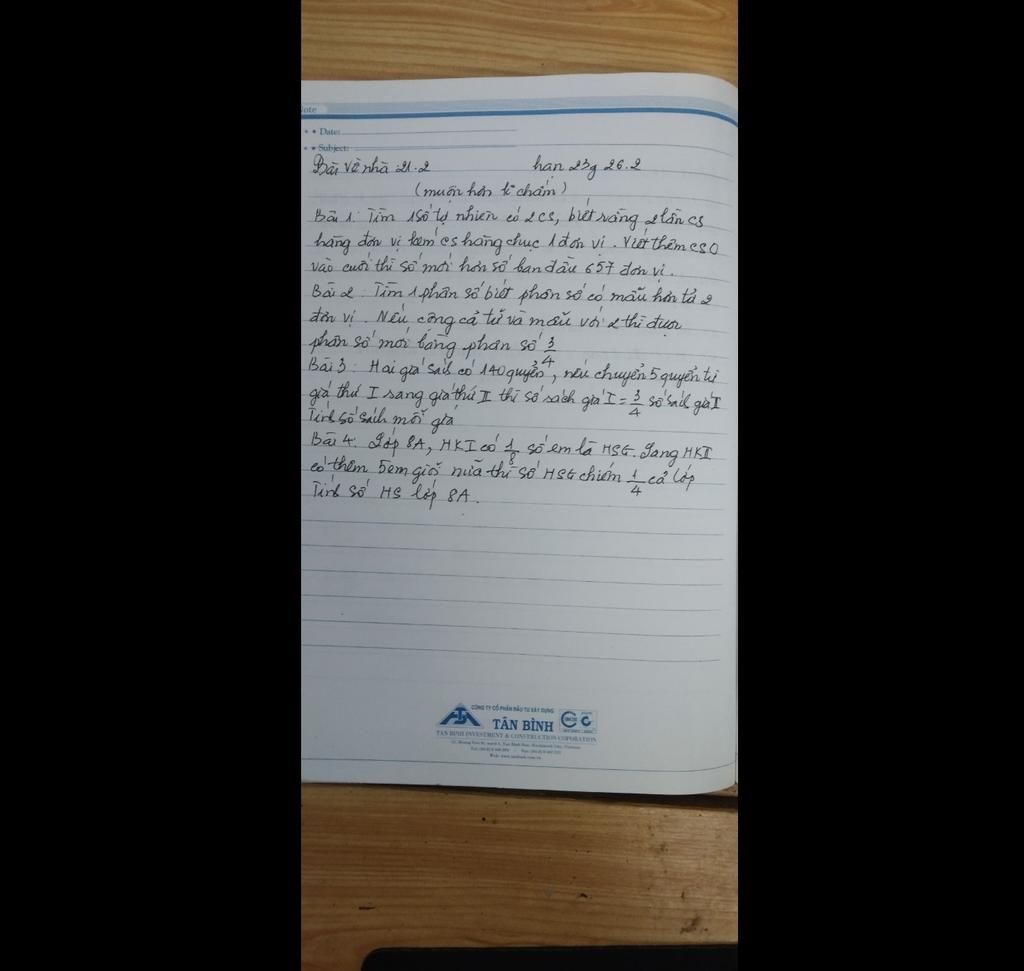 Note
Date:
Subject:
Bài về nhà 21.2 hạn 23g 26.2
(muộn hơn k chấm)
Bài 1: Tìm 1 số tự nhiên có 2 CS, biết rằng 2 lần CS
hàng đơn vị kém CS hàng chục 1 đơn vị. Viết thêm CS 0
vào cuối thì số mới hơn số ban đầu 657 đơn vị.
Bài 2: Tìm 1 phân số biết phân số có mẫu hơn tử 2
đơn vị. Nếu cộng cả tử và mẫu với 2 thì được
phân số mới bằng phân số 3/4
Bài 3: Hai giá sách có 140 quyển, nếu chuyển 5 quyển từ
giá thứ I sang giá thứ II thì số sách giá I = 3/4 số sách giá II
Tính số sách mỗi giá
Bài 4: Lớp 8A, HKI có 1/8 số em là HSG. Sang HKII
có thêm 5 em giỏi nữa thì số HSG chiếm 1/4 cả lớp
Tính số HS lớp 8A.
CÔNG TY CỔ PHẦN ĐẦU TƯ XÂY DỰNG
TÂN BÌNH
TAN BINH INVESTMENT & CONSTRUCTION COPORATION